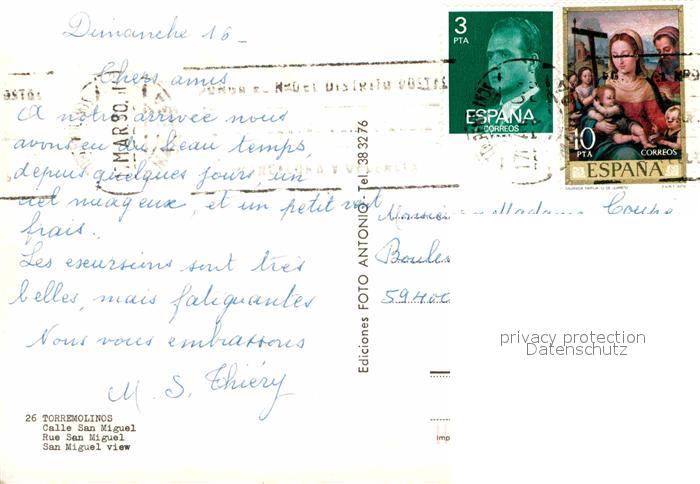 Dimanche 16 -
Chers amis
A notre arrivée nous
avons eu du beau temps,
depuis quelques jours, un
ciel nuageux, et un petit vent
frais.
Les excursions sont très
belles, mais fatiguantes
Nous vous embrassons
M. S. Thiéry
26 TORREMOLINOS
Calle San Miguel
Rue San Miguel
San Miguel view
Ediciones FOTO ANTONIO. T. 383276
3
PTA
ESPAÑA
CORREOS
10
PTA
CORREOS
ESPAÑA
MAR 80
Madame Coupé
59400
privacy protection
Datenschutz
Imp